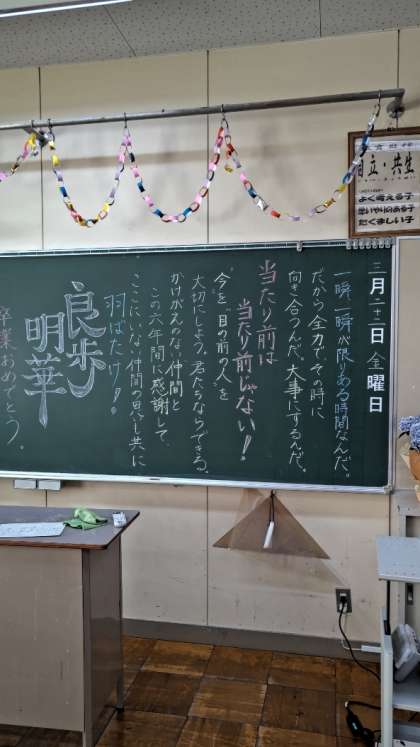 自立・共生
よく考える子
思いやりのある子
たくましい子
三月二十二日 金曜日
一瞬、一瞬が限りある時間なんだ。
だから全力で、その時に
向き合うんだ。大事にするんだ。
当たり前は
当たり前じゃない!
“今”を“目の前の人”を
大切にしよう。君たちならできる。
かけがえのない仲間と
この六年間に感謝して、
ここにいない仲間の思いも共に
羽ばたけ!
良歩
明華
卒業おめでとう。